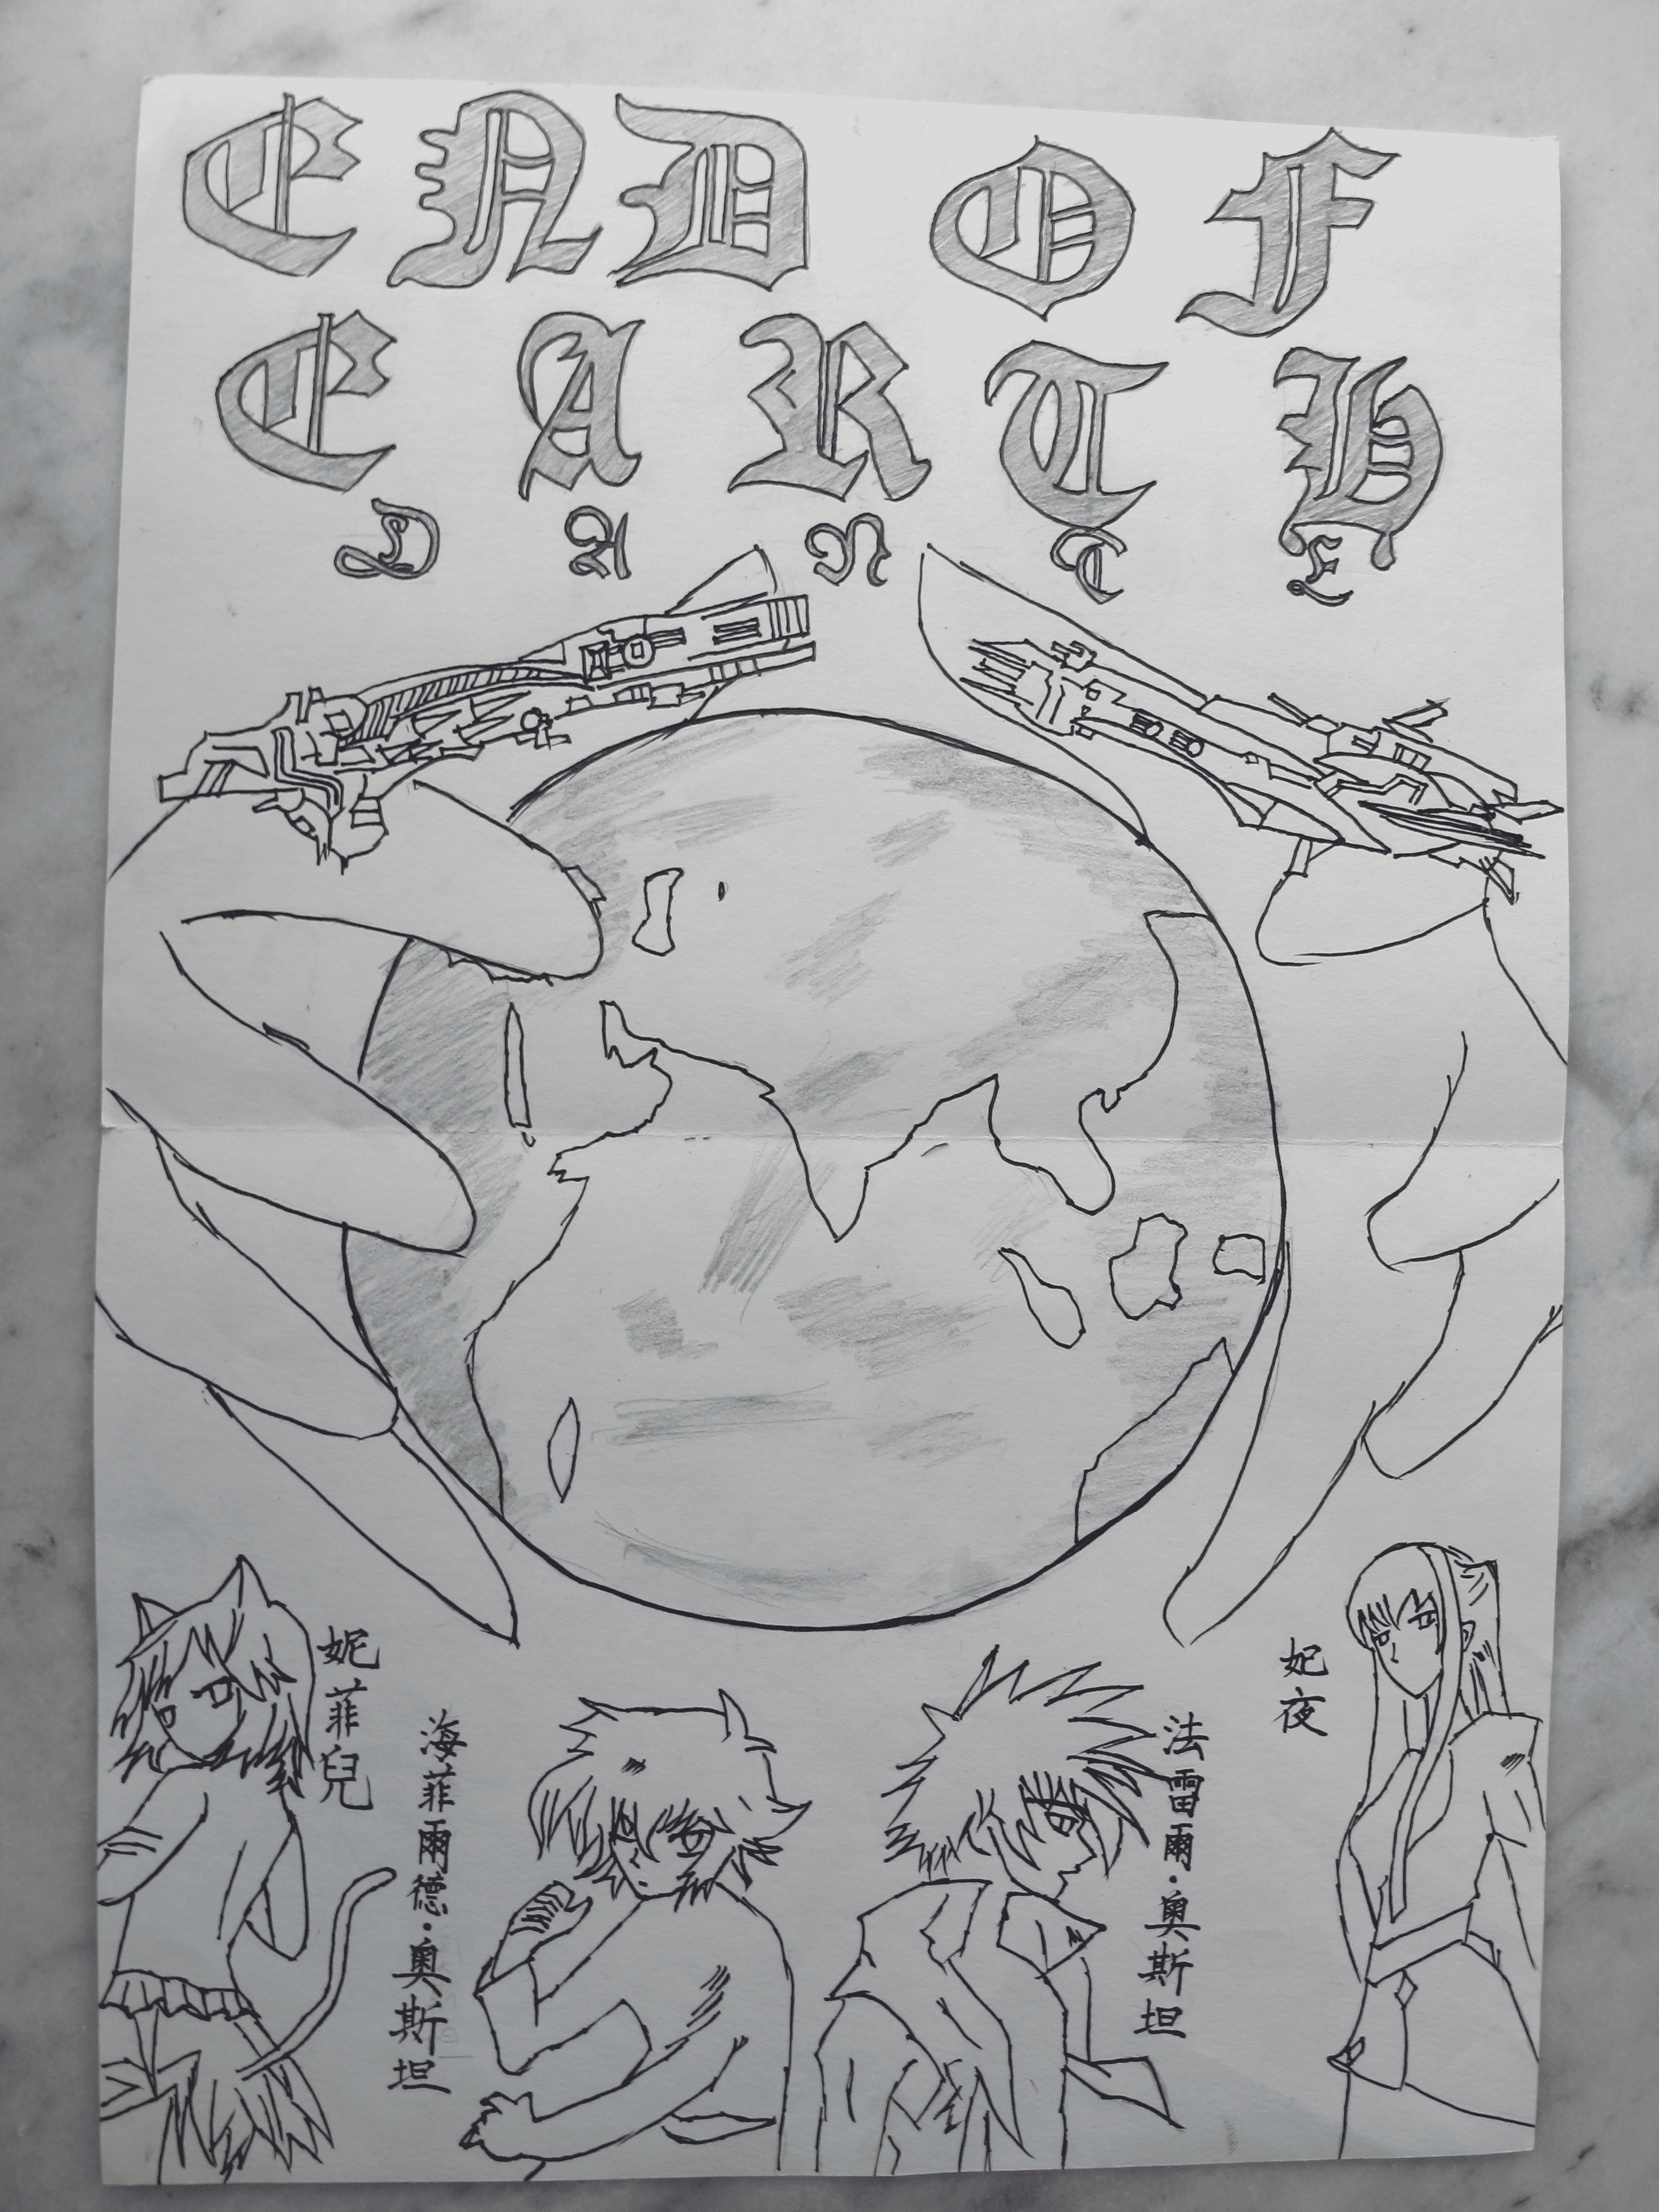 END OF
EARTH
DANTE
妮菲兒
海菲爾德·奧斯坦
法雷爾·奧斯坦
妃夜